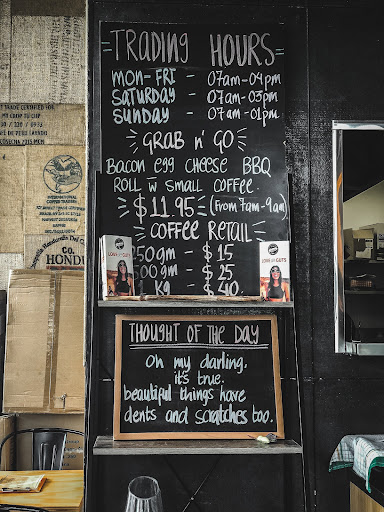 =TRADING HOURS=
MON-FRI - 07am-04pm
SATURDAY - 07am-03pm
SUNDAY - 07am-01pm
GRAB n' GO
BACON EGG CHEESE BBQ
ROLL W SMALL COFFEE
$11.95 (From 7am-9am)
COFFEE RETAIL
50gm - $15
00gm - $25
KG - $40
THOUGHT OF THE DAY
Oh my darling,
it's true.
beautiful things have
dents and scratches too.
TRADE CERTIFIED
COFFEE
TRADING CO.
CO.
HONDU